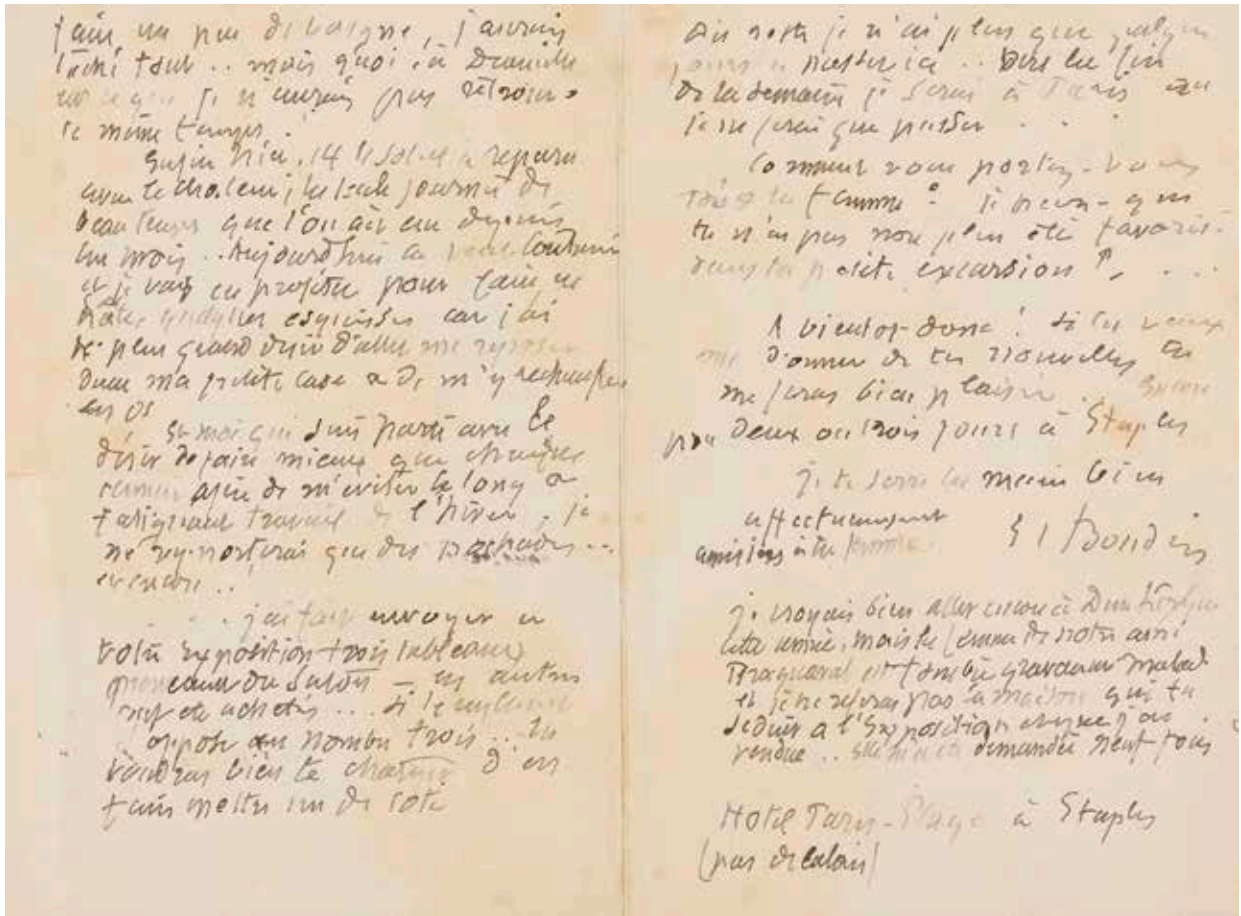 faire un peu de besogne, j'aurais
lâché tout .. mais quoi, à Deauville
je n'aurais pas retrouvé
le même temps.
Enfin hier, 14 le soleil a reparu
avec la chaleur, la seule journée de
beau temps que l'on ait eu depuis
un mois .. Aujourd'hui ça veut continuer
et je vais en profiter pour faire en
hâte quelques esquisses car j'ai
le plus grand désir d'aller me reposer
dans ma petite case & de m'y réchauffer
les os
Et moi qui suis parti avec le
désir de faire mieux que
afin de m'eviter le long &
fatiguant travail de l'hiver, je
ne rapporterai que des pochades ..
et encore ..
j'ai fait envoyer à
votre exposition trois tableaux
du Salon — les autres
ont été achetés ... si le
oppose au nombre trois .. tu
voudras bien te charger d'en
faire mettre un de coté
Du reste je n'ai plus que quelques
jours à passer ici .. Vers la fin
de la semaine je serai à Paris où
je ne ferai que passer . . .
Comment vous portez-vous
toi & ta femme ? je pense que
tu n'as pas non plus été favorisé
dans ta petite excursion ? . . .
A bientot donc ! si tu veux
me donner de tes nouvelles tu
me feras bien plaisir .. Encore
pour deux ou trois jours à Etaples
je te serre la main bien
affectueusement
amitiés à ta femme. E Boudin
je croyais bien aller encore à Dunkerque
cette année, mais la femme de notre ami
Braquaval est tombée gravement malade
et je ne reverrai pas la maison qui t'a
séduit à l'Exposition et que j'ai
vendue .. elle m'a été demandée neuf fois
Hotel Paris-Plage à Etaples
(pas de Calais)